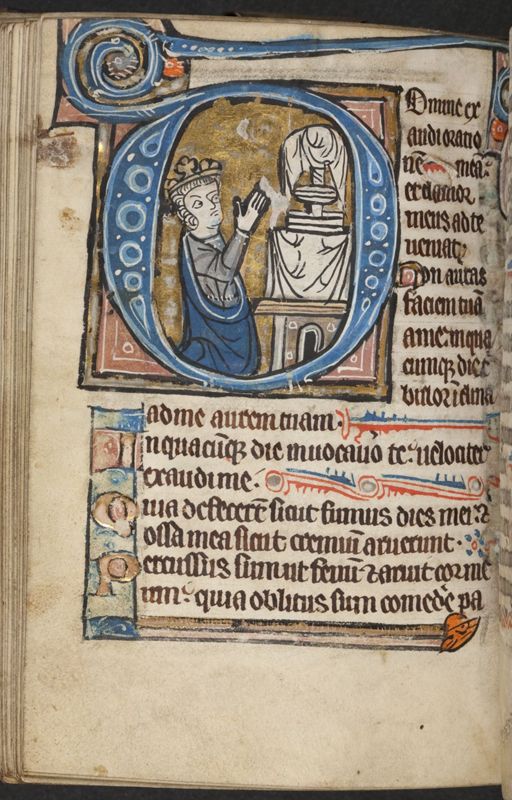 Domine ex
audi oratio
nem meam:
et clamor
meus ad te
ueniat
Non auertas
faciem tuã
a me: in qua
cumq; die t
bulor ĩclina
ad me aurem tuam:
In quacũq; die inuocauo te: uelociter
exaudi me:
Quia defecerẽt sicut fumus dies mei: ⁊
ossa mea sicut cremiũ aruerunt.
Percussus sum ut fenũ ⁊ aruit cor me
um: quia oblitus sum comedẽ pa